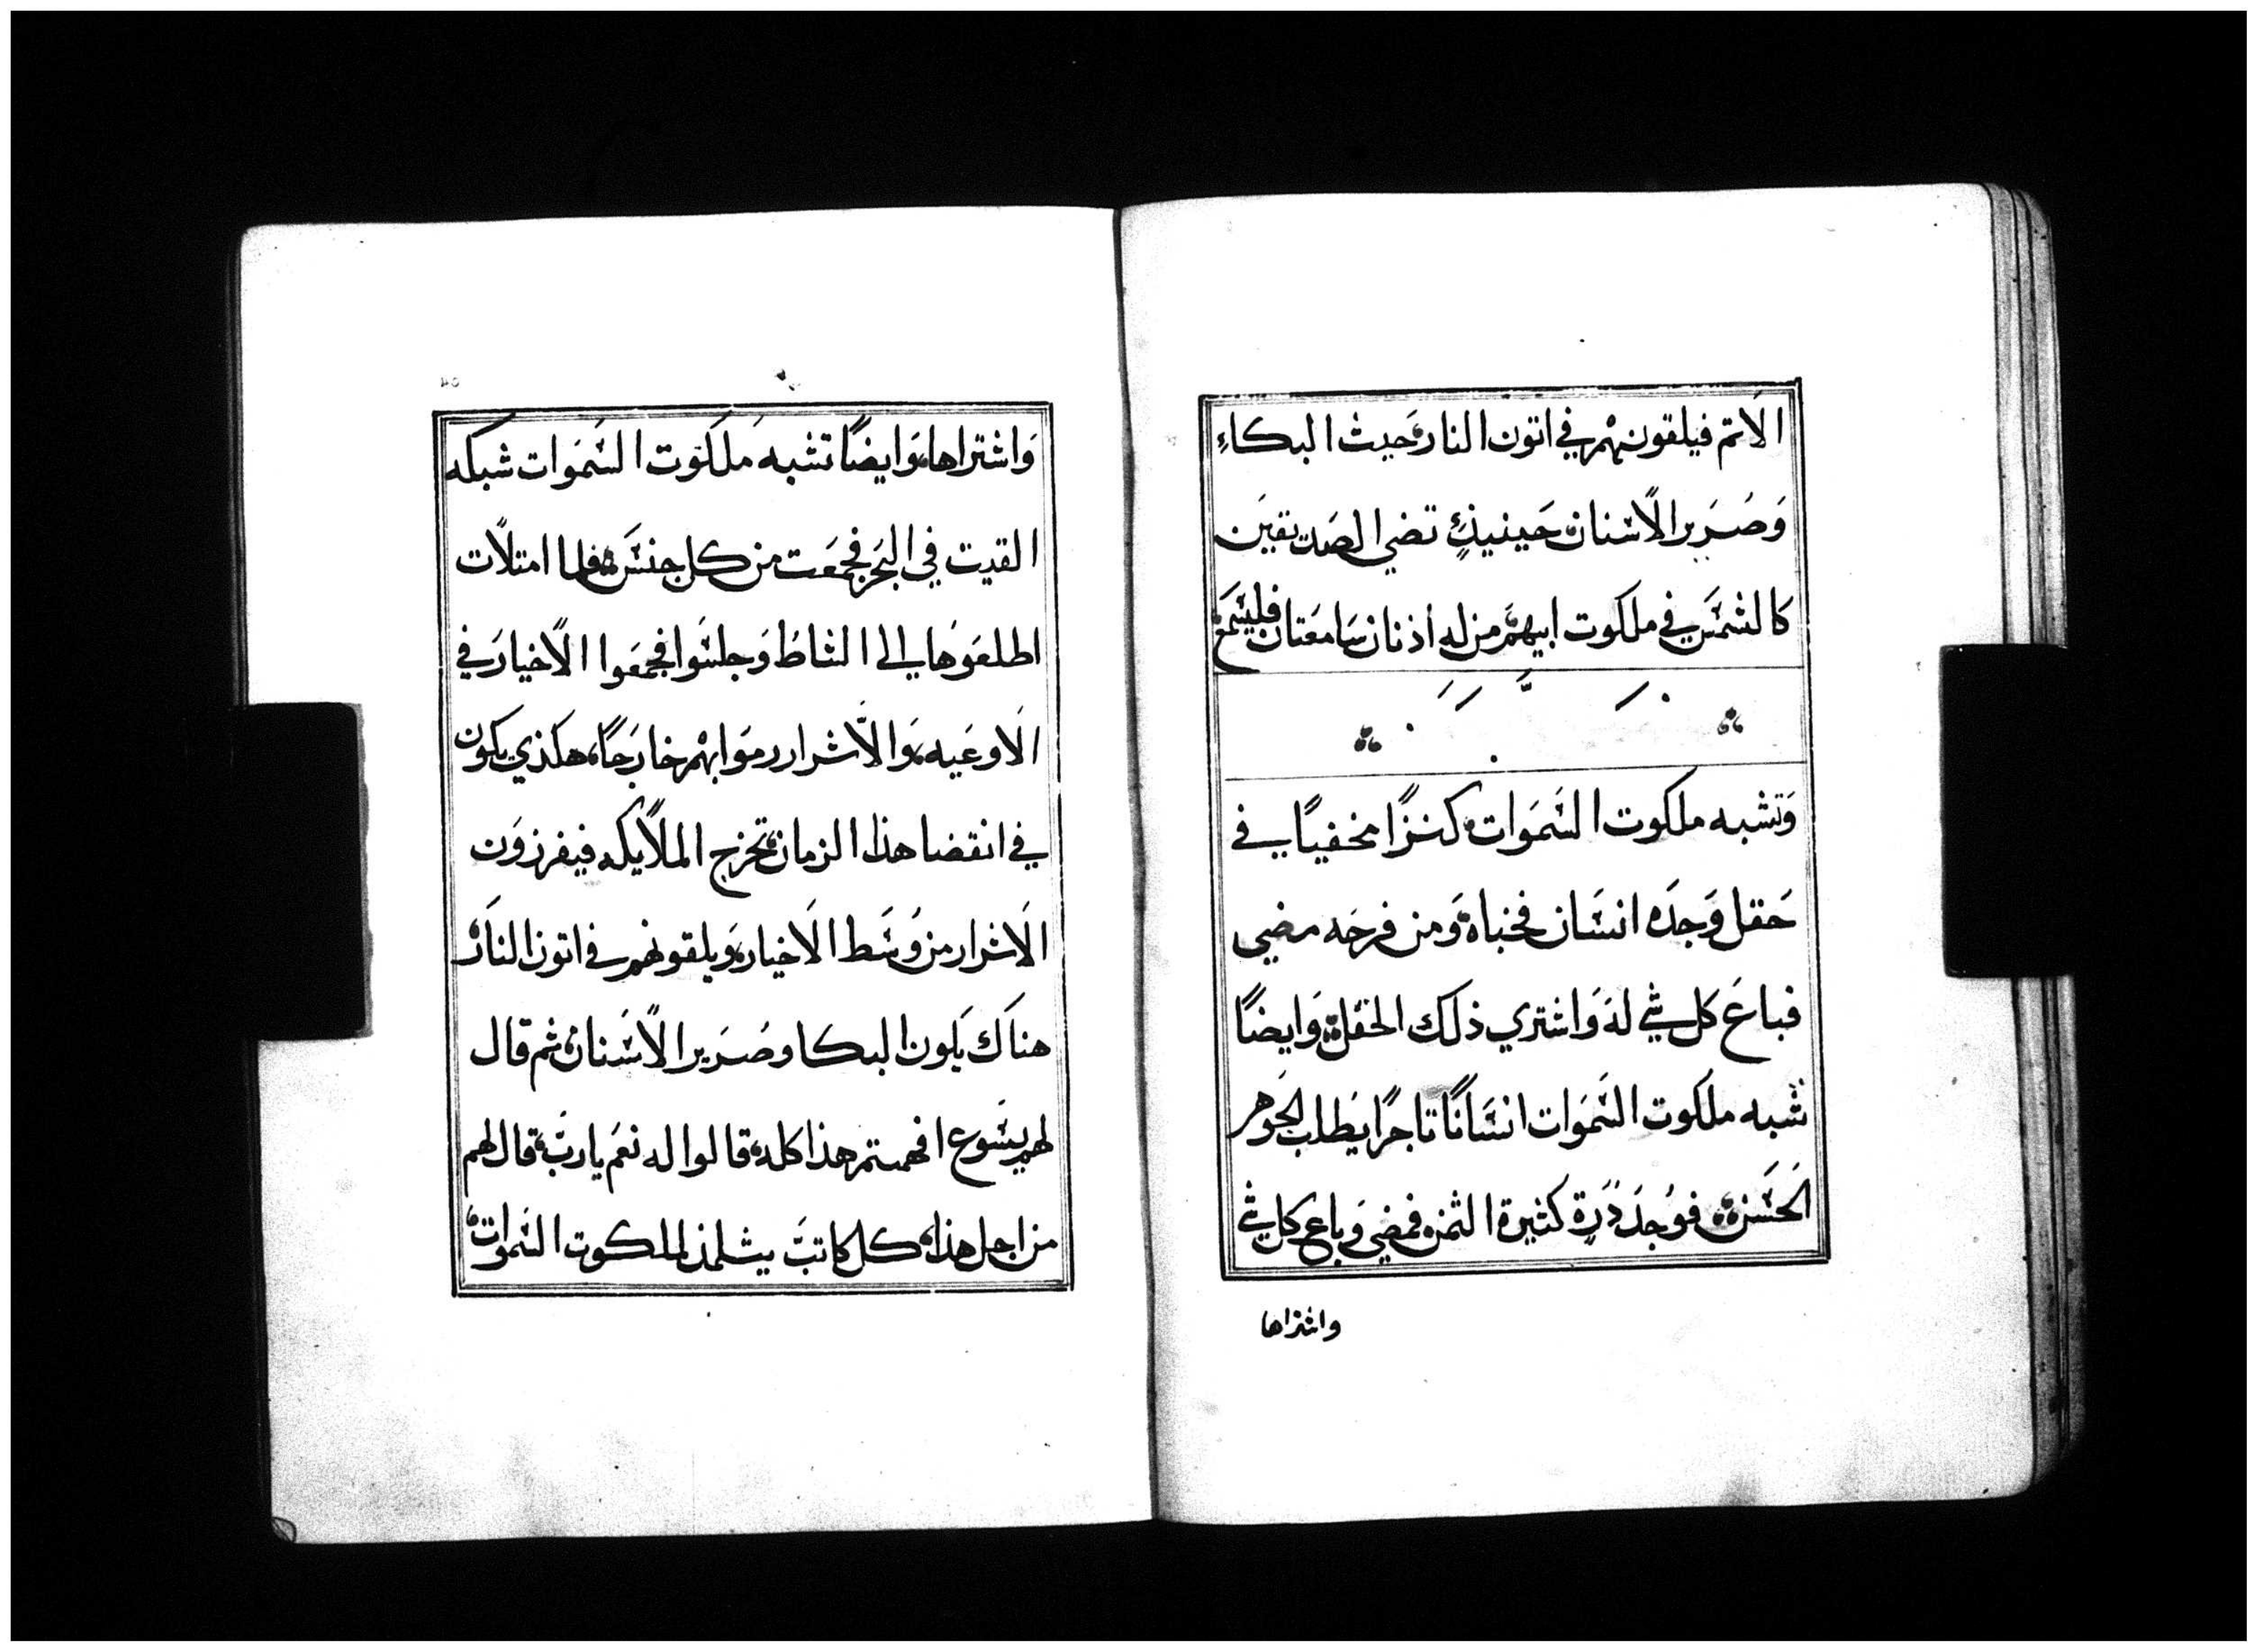 الاتم فيلقونهم في اتون النار حيث البكاءِ
وَصُرَير الاًسنان حَينيذٍ تضي الصَديقيَن
كالشمسَ في ملكوت ابيهمَ من له أذنان سَامعَتان فليسَمع
وَتشبه ملكوت السَموَات كنزًا مخفيًا في
حَقل وَجدَه انسَان فخباه وَمن فرحَه مضي
فباعَ كل شي لهَ وَاشتري ذلكَ الحَقل وَايضًا
تشبه ملكوت السَموَات انسَانًا تاجرًا يَطلب الجَوهر
الحَسَن فوُجدَ دُرَة كثيرة الثمن فمضي وَباع كل شي
واشتراها
وَاشتراها وَايضًا تشبه مَلكوت السَموَات شبكه
القيت في البَحر فجمعَت من كل جنسَ فلما امتلاًت
اطلعَوهُا الي الشاطَ وَجلسَوا فجمعَوا الاًخيارَ في
الاَوعَيه وَالاَشرار رموَا بهمْ خارَجًا هكذي يكون
في انقضا هذا الزمان تخرج الملاًيكه فيفرزوَن
الاَشرار من وُسَط الاَخيار وَيلقونهم في اتون النار
هناَك يَكون البكا وصُرَير الاًسَنان ثم قال
لهم يسَوع افهمتم هذا كله قالوا له نعَم ياربَ قال لهم
من اجل هذا كل كاتبَ يتلمذ لملكوت السَموات